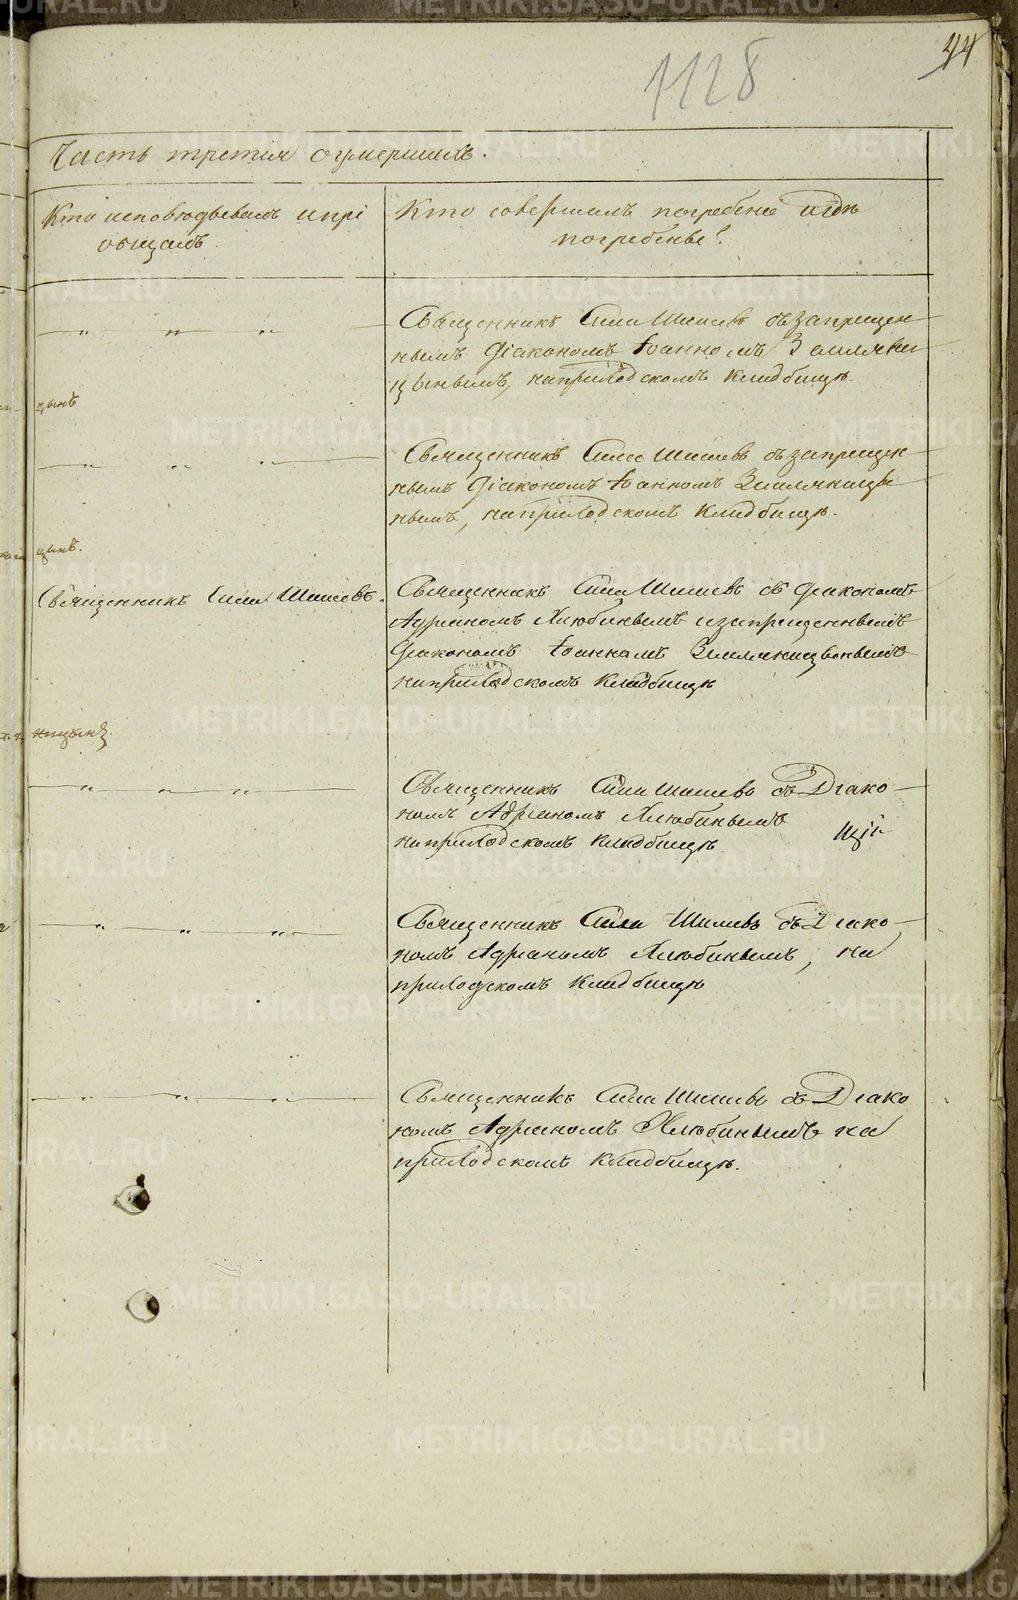 44
1128
Часть третия о умершихъ.
Кто исповѣдывалъ и прі
общалъ.
Кто совершалъ погребеніе и гдѣ
погребены?
Священникъ Сила Шишевъ съ запрещен
нымъ Діакономъ Іоанномъ Земляни
цынымъ, на приходскомъ кладбищѣ.
цынъ
Священникъ Сила Шишевъ съ запрещен
нымъ Діакономъ Іоанномъ Земляницы
нымъ, на приходскомъ кладбищѣ.
цынъ.
Священникъ Сила Шишевъ.
Священникъ Сила Шишевъ съ Діакономъ
Адріаномъ Хлюбинымъ и запрещеннымъ
Діакономъ Іоанномъ Земляницынымъ
на приходскомъ кладбищѣ
ницынъ
Священникъ Сила Шишевъ съ Діако
номъ Адріаномъ Хлюбинымъ
на приходскомъ кладбищѣ
Священникъ Сила Шишевъ съ Діако
номъ Адріаномъ Хлюбинымъ, на
приходскомъ кладбищѣ
Священникъ Сила Шишевъ съ Діако
номъ Адріаномъ Хлюбинымъ на
приходскомъ кладбищѣ.
METRIKI.GASO-URAL.RU